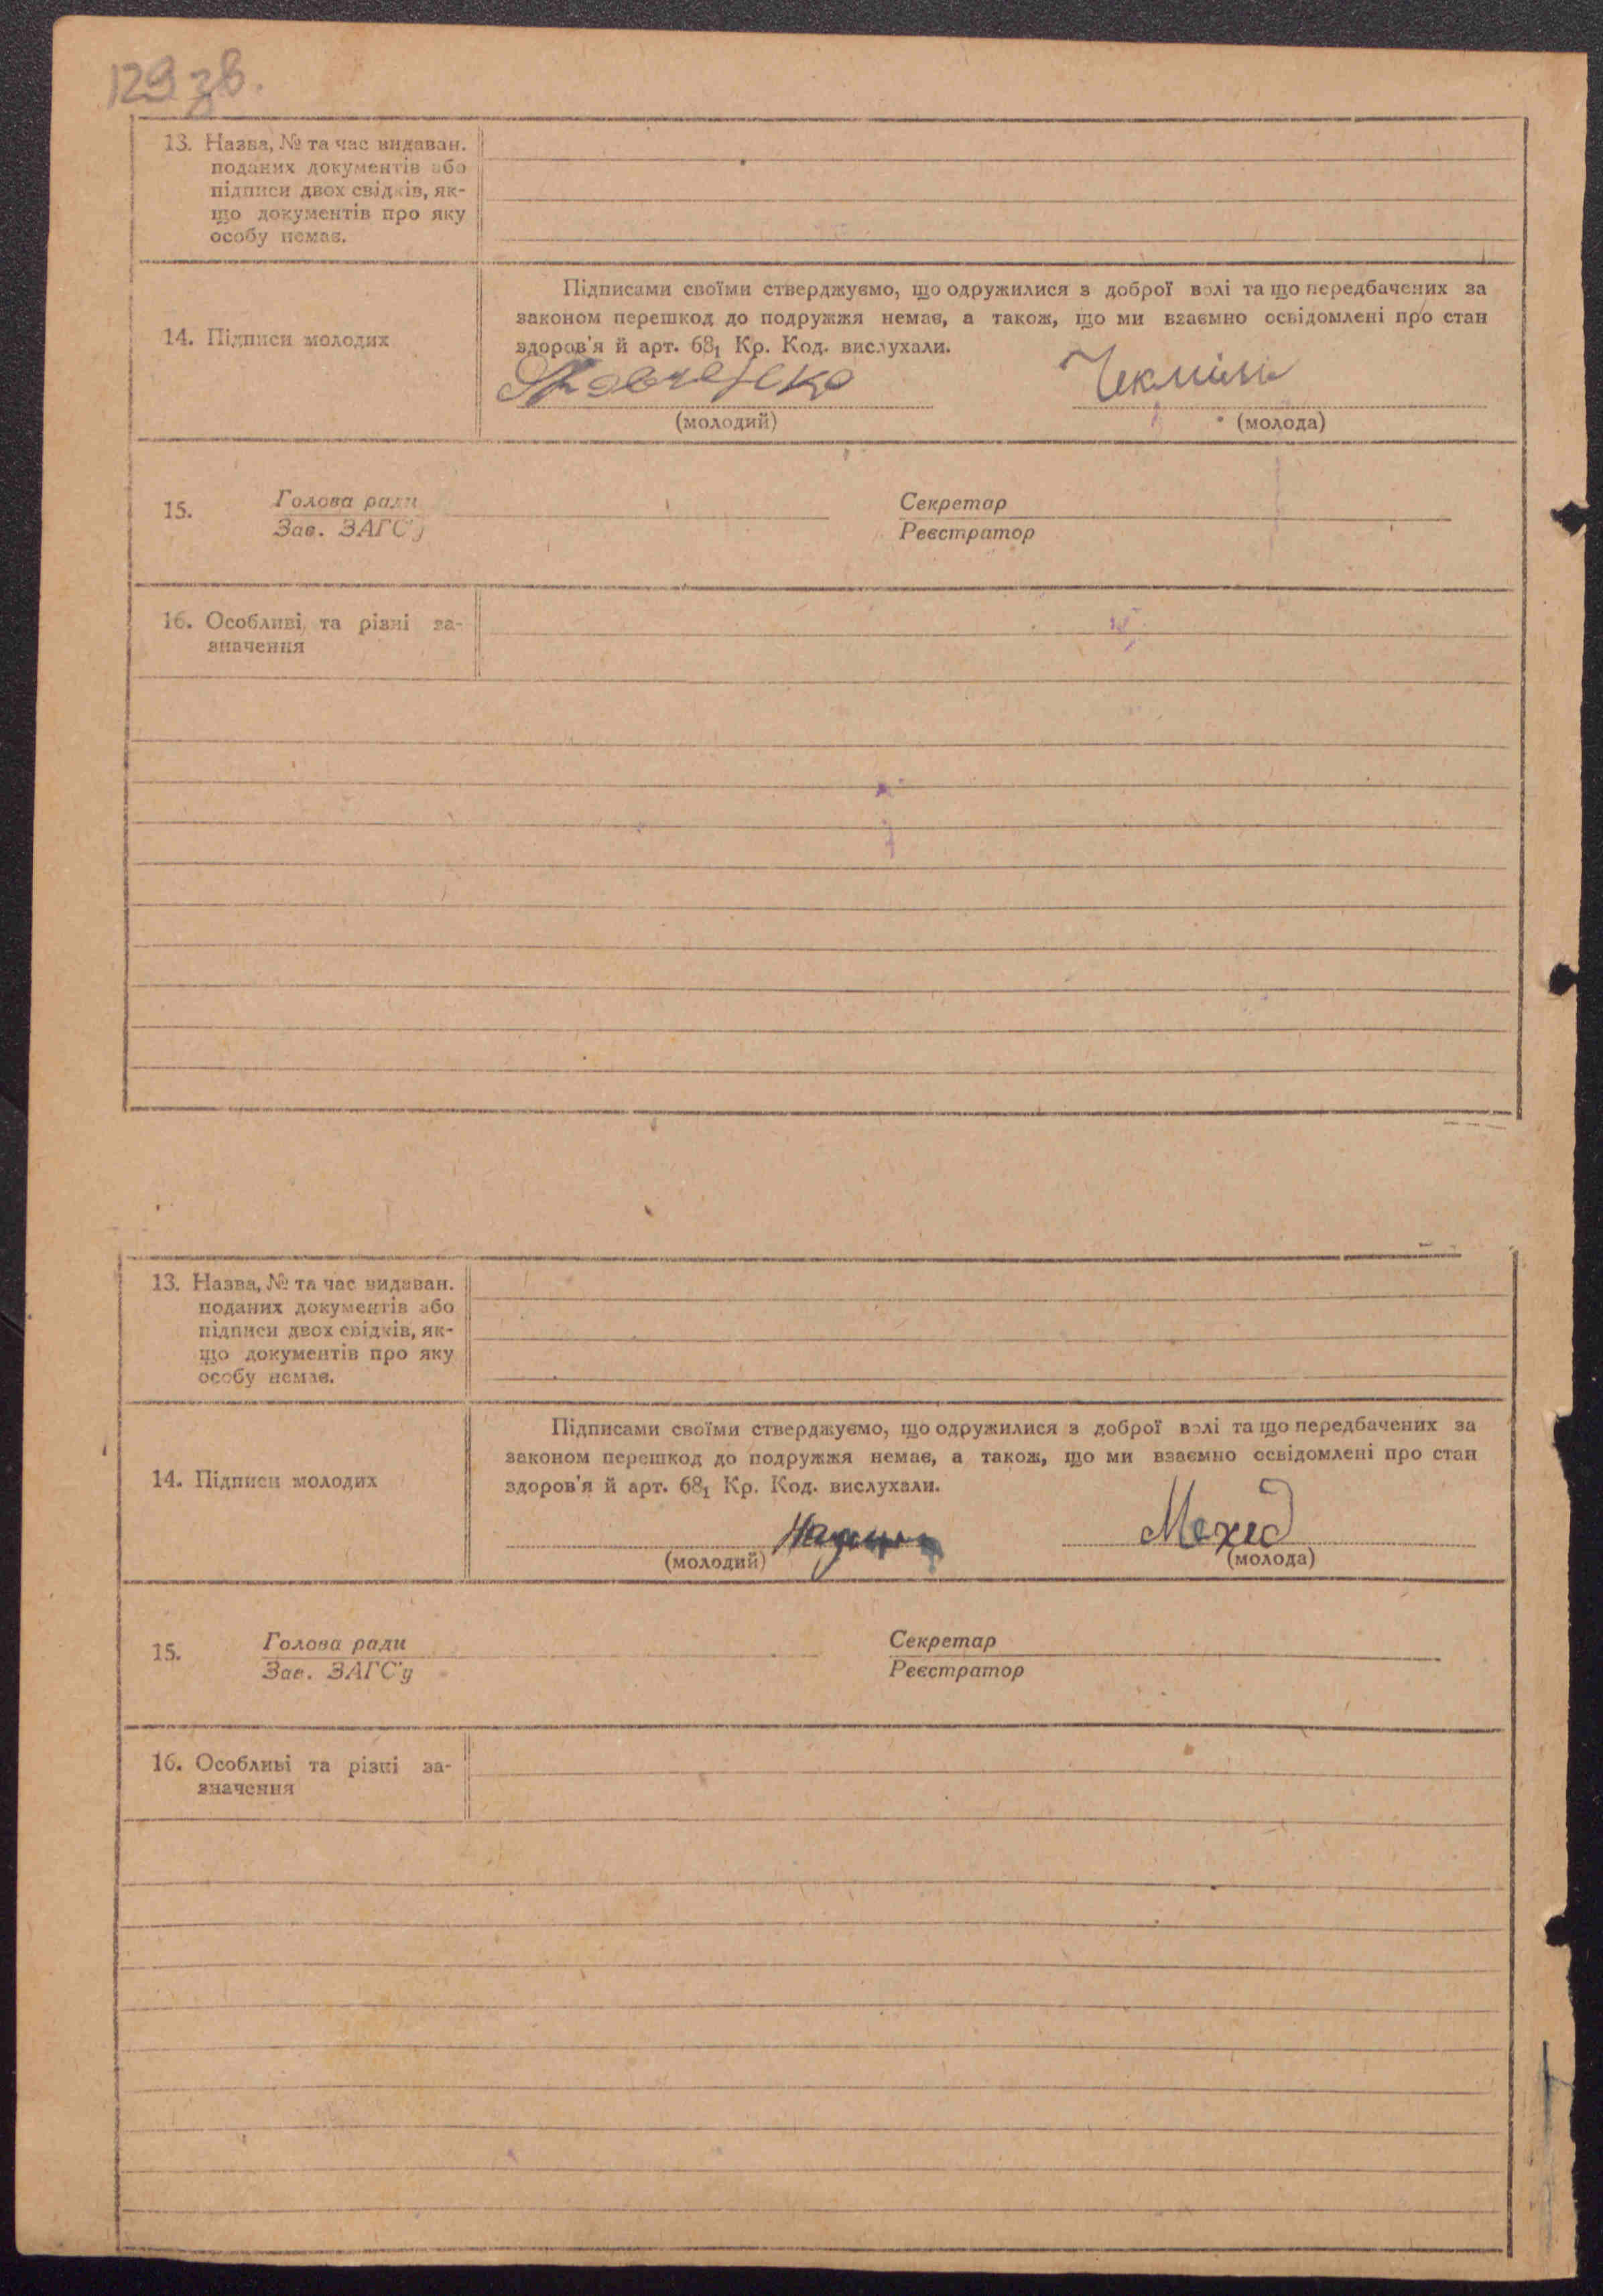 129 зв.
13. Назва, № та час видаван.
поданих документів або
підписи двох свідків, як-
що документів про яку
особу немає.
Підписами своїми стверджуємо, що одружилися з доброї волі та що передбачених за
законом перешкод до подружжя немає, а також, що ми взаємно освідомлені про стан
14. Підписи молодих
здоров'я й арт. 68₁ Кр. Код. вислухали.
(молодий) (молода)
15. Голова ради Секретар
Зав. ЗАГС'у Реєстратор
16. Особливі та різні за-
значення
13. Назва, № та час видаван.
поданих документів або
підписи двох свідків, як-
що документів про яку
особу немає.
Підписами своїми стверджуємо, що одружилися з доброї волі та що передбачених за
законом перешкод до подружжя немає, а також, що ми взаємно освідомлені про стан
14. Підписи молодих
здоров'я й арт. 68₁ Кр. Код. вислухали.
(молодий) (молода)
15. Голова ради Секретар
Зав. ЗАГС'у Реєстратор
16. Особливі та різні за-
значення